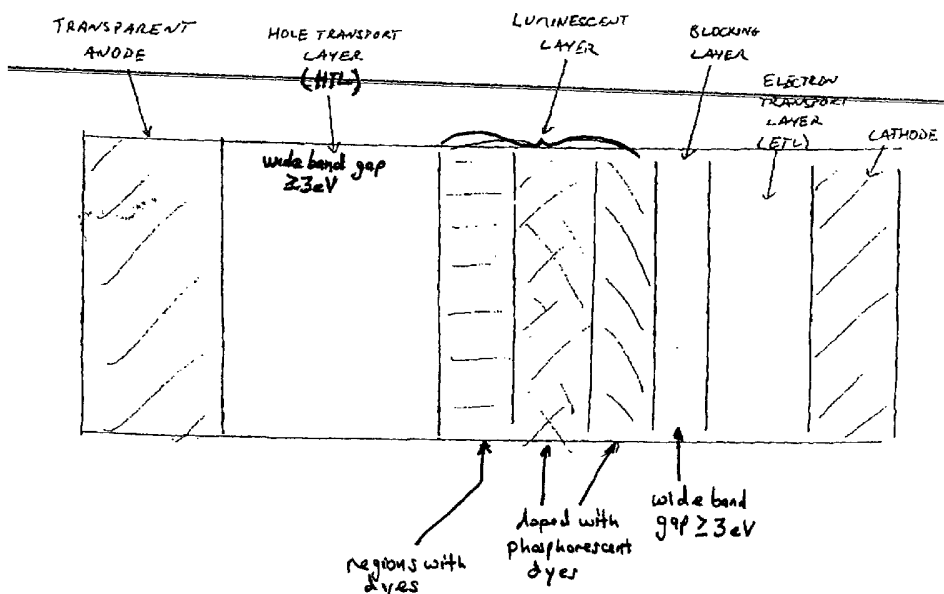 TRANSPARENT
ANODE
HOLE TRANSPORT
LAYER
(HTL)
LUMINESCENT
LAYER
BLOCKING
LAYER
ELECTRON
TRANSPORT
LAYER
(ETL)
CATHODE
wide band gap
≥3eV
regions with
dyes
doped with
phosphorescent
dyes
wide band
gap ≥3eV